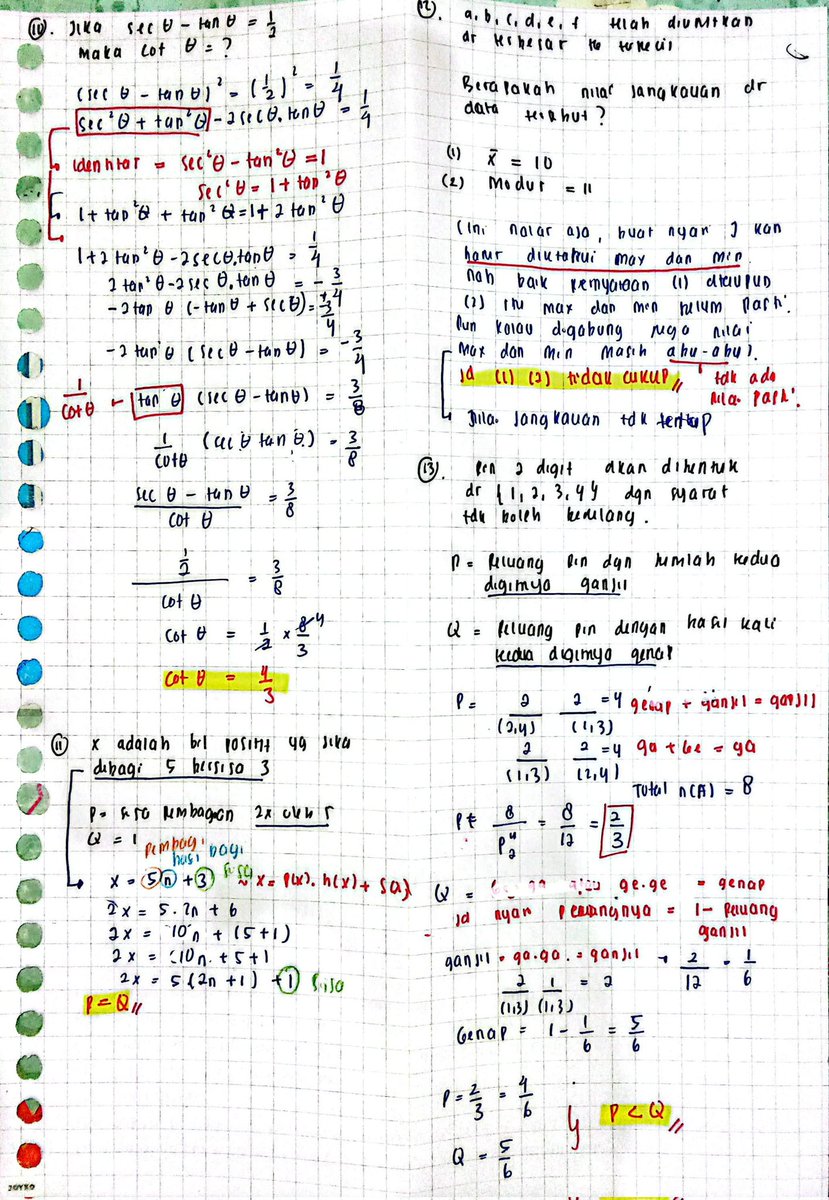 10. Jika sec θ - tan θ = 1/2
Maka cot θ = ?
(sec θ - tan θ)² = (1/2)² = 1/4
sec²θ + tan²θ - 2 sec θ. tan θ = 1/4
Identitas = sec²θ - tan²θ = 1
sec²θ = 1 + tan²θ
1 + tan²θ + tan²θ = 1 + 2 tan²θ
1 + 2 tan²θ - 2 sec θ. tan θ = 1/4
2 tan²θ - 2 sec θ. tan θ = -3/4
-2 tan θ (-tan θ + sec θ) = 3/4
-2 tan θ (sec θ - tan θ) = -3/4
1/cot θ ← tan θ (sec θ - tan θ) = 3/8
1/cot θ (sec θ tan θ) = 3/8
sec θ - tan θ / cot θ = 3/8
1/2 / cot θ = 3/8
cot θ = 1/2 × 8/3 4
cot θ = 4/3
11 x adalah bil positif yg jika
dibagi 5 bersisa 3
P = sisa pembagian 2x oleh 5
Q = 1
pembagi
hasil bagi
x = 5n + 3 sisa x = P(x). h(x) + s(x)
2x = 5. 2n + 6
2x = 10n + (5+1)
2x = 10n + 5 + 1
2x = 5(2n + 1) + 1 sisa
P = Q //
12. a, b, c, d, e, f telah diurutkan
dr terbesar ke terkecil
Berapakah nilai jangkauan dr
data tersebut?
(1) x̄ = 10
(2) Modus = 11
(Ini nalar aja, buat nyari J kan
harus diketahui max dan min.
nah baik pernyataan (1) ataupun
(2) itu max dan min belum pasti.
Pun kalau digabung juga nilai
max dan min masih abu-abu).
Jd (1) (2) tidak cukup // tdk ada
nilai pasti.
Nilai jangkauan tdk tertap
13. Pin 2 digit akan dibentuk
dr {1, 2, 3, 4} dgn syarat
tdk boleh berulang.
P = Peluang pin dgn jumlah kedua
digitnya ganjil
Q = Peluang pin dengan hasil kali
kedua digitnya genap
P = 2 2 = 4 genap + ganjil = ganjil
(2,4) (1,3)
2 2 = 4 ga + ge = ga
(1,3) (2,4)
Total n(A) = 8
P = 8/P⁴₂ = 8/12 = 2/3
Q = ge.ge = genap
Jd nyari peluangnya = 1 - peluang
ganjil
ganjil = ga.ga. = ganjil → 2/12 = 1/6
2 1 = 2
(1,3) (1,3)
Genap = 1 - 1/6 = 5/6
P = 2/3 = 4/6
P < Q //
Q = 5/6
JOYKO